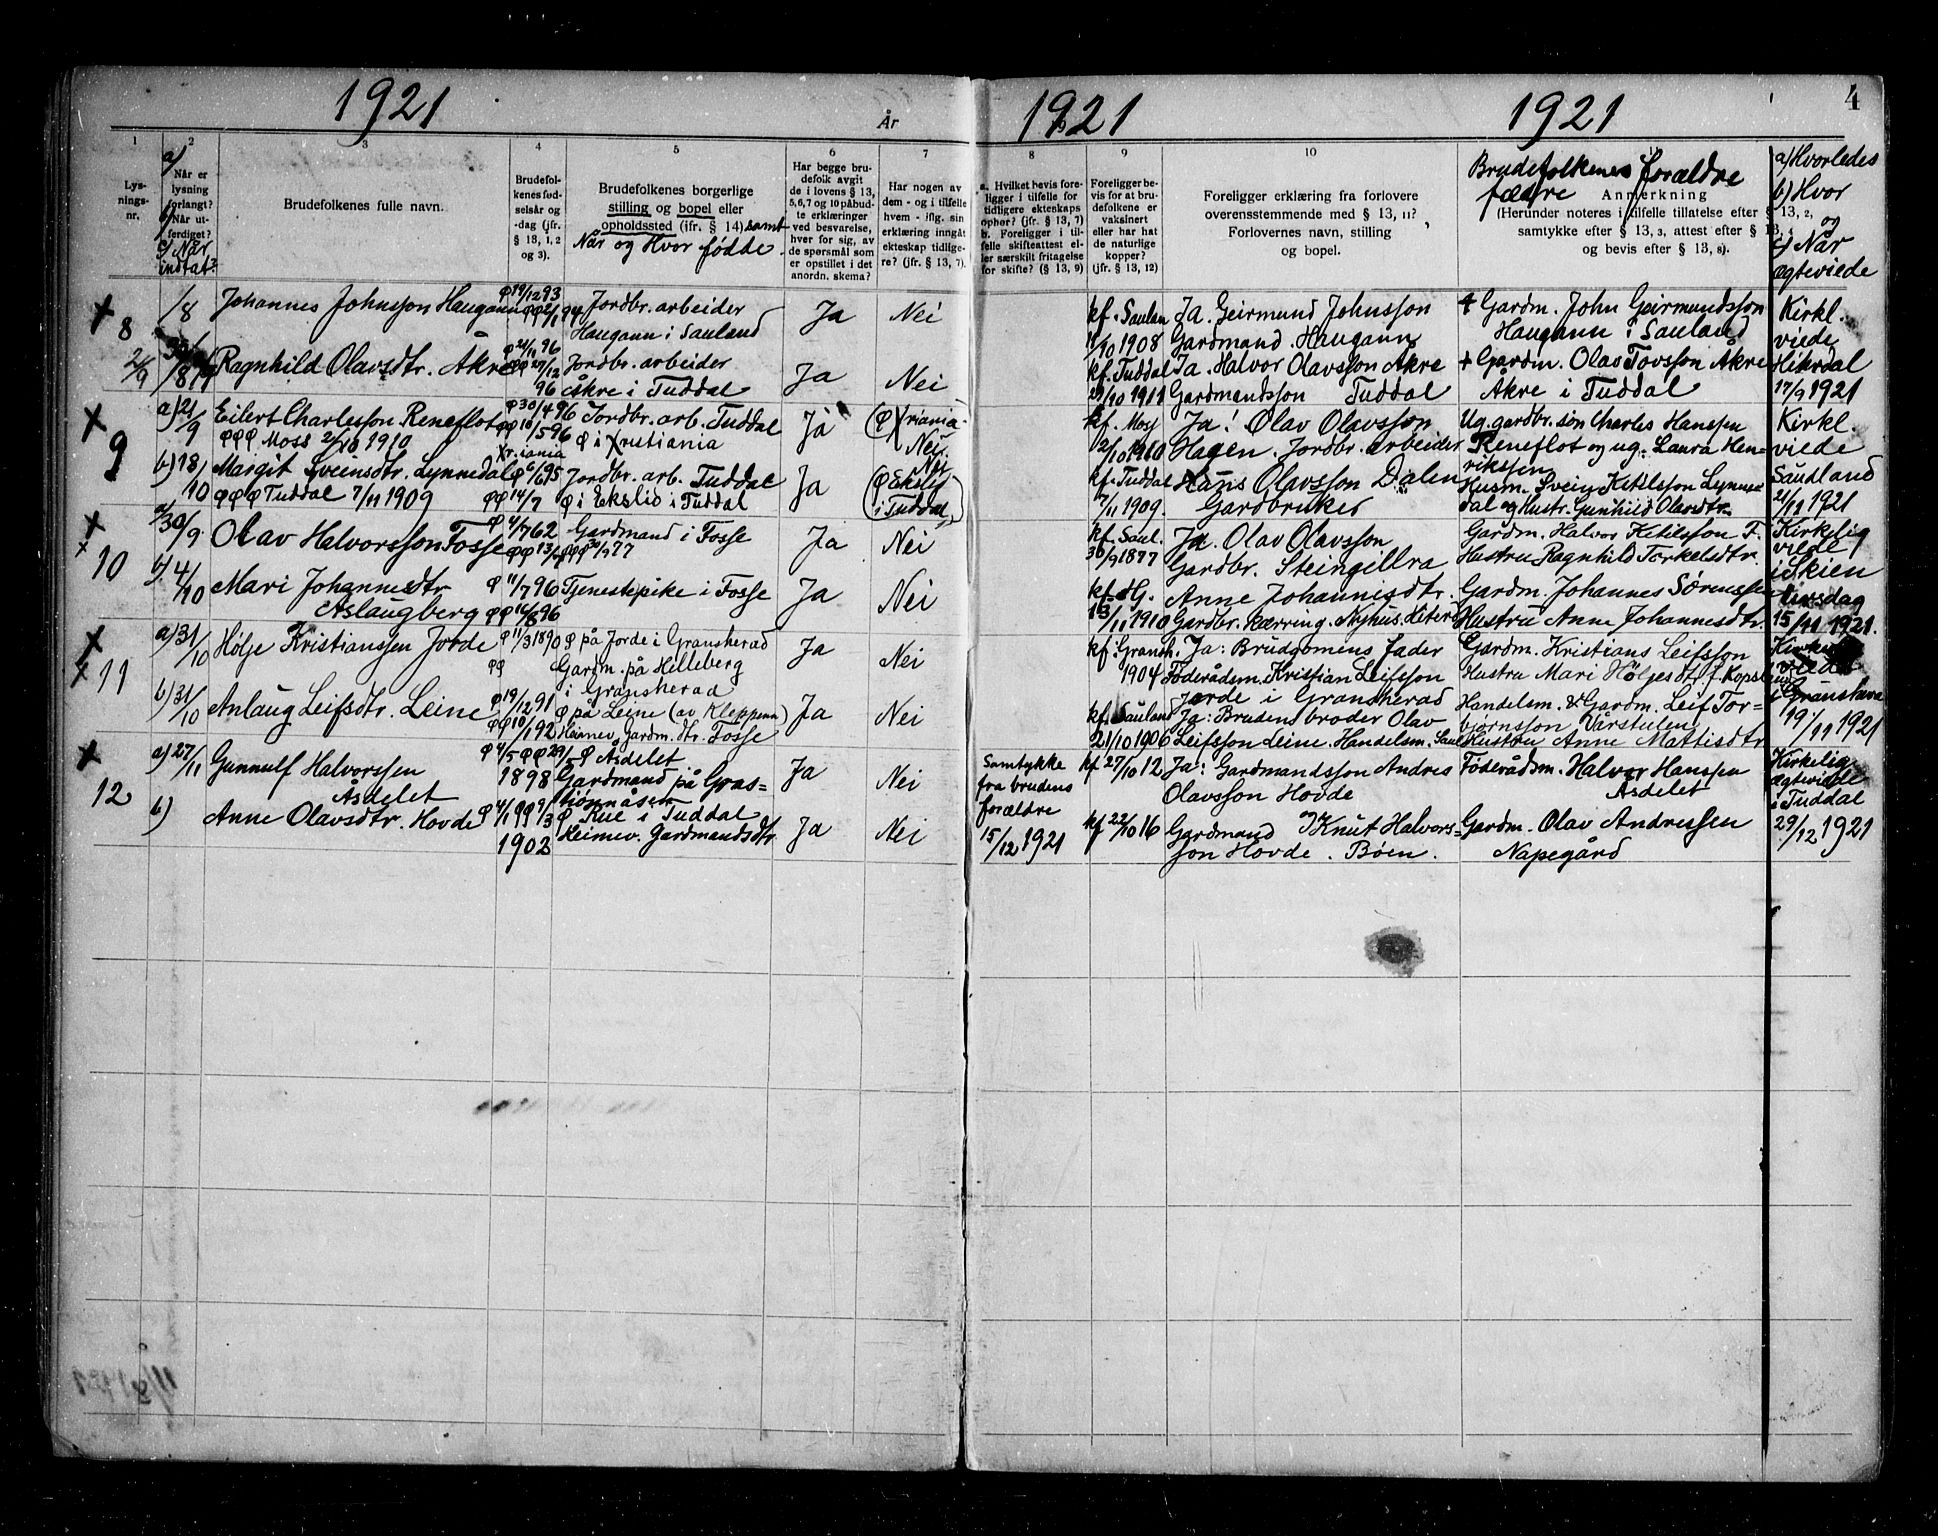 1921
År
1921
1921
4
1
2
3
4
5
6
7
8
9
10
Lysningsnr.
a) Når er lysning forlangt? b) Når utferdiget? c) Når indtat?
Brudefolkenes fulle navn.
Brudefolkenes fødselsår og -dag (jfr. § 13, 1, 2 og 3).
Brudefolkenes borgerlige stilling og bopel eller opholdssted (ifr. § 14) samt Når og Hvor fødde.
Har begge brudefolk avgit de i lovens § 13, 5, 6, 7 og 10 påbudte erklæringer ved besvarelse, hver for sig, av de spørsmål som er opstillet i det anordn. skema?
Har nogen av dem - og i tilfelle hvem - iflg. sin erklæring inngått ekteskap tidligere? (jfr. § 13, 7).
a. Hvilket bevis foreligger i tilfelle for tidligere ekteskaps ophør? (jfr. § 13, 7) b. Foreligger i tilfelle skifteattest eller særskilt fritagelse for skifte? (§ 13, 9)
Foreligger bevis for at brudefolkene er vaksinert eller har hat de naturlige kopper? (jfr. § 13, 12)
Foreligger erklæring fra forlovere overensstemmende med § 13, 11? Forlovernes navn, stilling og bopel.
Brudefolkenes forældre
Anmerkning (Herunder noteres i tilfelle tillatelse efter § 13, 2, samtykke efter § 13, 3, attest efter § 13, og bevis efter § 13, 8).
a) Hvorledes b) Hvor og c) Når ægteviede
8
2/9
/8
Johannes Johnsson Haugann
19/12 93
Jordbr. arbeider
Haugann i Sauland
Ja
Nei
kf. Saulan
11/10 1908
Ja. Geirmund Johnsson
Gardmand Haugann
Gardm. John Geirmundsson
Haugann i Sauland
Kirkl.
viede
Hikrdal
17/9 1921
Ragnhild Olavsdtr. Åkre
24/11 96
27/12 96
Jordbr. arbeider
Åkre i Tuddal
Ja
Nei
kf. Tuddal
29/10 1911
Ja. Halvor Olavsson Åkre
Gardmandsson Tuddal
+ Gardm. Olav Tovsson Åkre
Åkre i Tuddal
9
a) 21/9
Eilert Charlesson Reneflot
φφφ Moss 2/10 1910
φ 30/4 96
φφ 10/5 96
Jordbr. arb. Tuddal
φ i Xristiania
Ja
Nei
kf. Moss
2/10 1910
Ja! Olav Olavsson
Hagen. Jordbr. arbeider
Ug. gardbr. søn Charles Hanssen
Reneflot og ug. Laura Henrikssen
Kirkl.
viede
Saudland
21/11 1921
b) 18/10
Margit Sveensdtr. Lynnedal
φφφ Tuddal 7/11 1909
φ 6/6 95
φφ 14/7
Jordbr. arb. Tuddal
φ i Ekslid i Tuddal
Ja
Nei
(φ Ekslid i Tuddal)
kf. Tuddal
7/11 1909.
Olavsson Dalen
Gardbruker
Husm. Svein Ketilsson Lynnedal og Hustr. Gunhild Olavsdtr.
10
a) 30/9
Olav Halvorsson Fosse
φ 4/7 62
Gardmand i Fosse
φφφ 30/9 77
Ja
Nei
kf. Saul.
30/9 1877
Ja. Olav Olavsson
Gardbr. Steingillra
Gardm. Halvor Ketilsson F.
Hustru Ragnhild Torkelsdtr.
Kirkelig
viede
i Skien
15/11 1921.
b) 4/10
Mari Johannesdtr
Aslaugberg
φ 11/7 96
φφ 16/8 96
Tjenestepike i Fosse
Ja
Nei
kf. Hj.
13/11 1910
Anne Johannisdtr.
Gardbr. kærring. Nyhus. Hiterd.
Gardm. Johannes Sørenssen
Hustru Anne Johannesdtr.
11
a) 31/10
Hølje Kristianssen Jorde
φ 11/3 1890
φφ
φ på Jorde i Gransherad
Gardm. på Hilleberg
i Gransherad
Ja
Nei
kf. Gransh.
1904
Ja: Brudgomens fader
Føderådsm. Kristian Leifsson
Jorde i Gransherad
Gardm. Kristians Leifsson
Hustru Mari Høljesdt. f. Kopsland
Gransherad
19/11 1921
b) 31/10
Anlaug Leifsdtr. Leine
φ 19/12 91
φφ 10/1 92
φ på Leine (av Kleppenn)
Heimev. Gardm. dtr. Fosse
Ja
Nei
kf. Sauland
21/10 1906
Ja: Brudens broder Olav
Leifsson Leine. Handelsm. Saul.
Handelsm. & Gardm. Leif Torbjørnsson Vårstulen
Hustru Anne Mattisdtr
12
a) 27/11
Gunnulf Halvorssen
Åsdelet
φ 4/5 φφ 29/5
1898
φ Åsdelet
Gardmand på Gras=
tjønnåsen
Ja
Nei
Samtykke
fra brudens
forældre
15/12 1921
kf 27/10 12
Ja: Gardmandsson Andres
Olavsson Hovde
Føderådsm. Halvor Hanssen
Åsdelet
Kirkelig
ægtevidde
i Tuddal
29/12 1921
b)
Anne Olavsdtr. Hovde
φ 4/1 φφ 9/3
1902
φ Rue i Tuddal
Heimev. Gardmandsdtr
Ja
Nei
kf 22/10 16
Gardmand Knut Halvors=
son Hovde. Bøen.
Gardm. Olav Andressen
Napegård